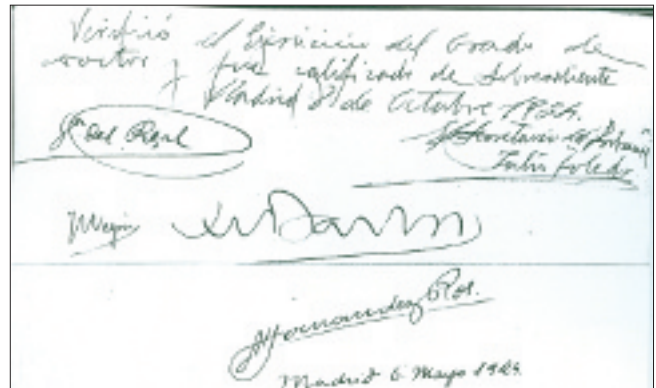 Verificó el Ejercicio del Grado de
doctor y fue calificado de Sobresaliente
Madrid 21 de Octubre 1924.
del Real
El Secretario del Tribunal
Julio Toledo
Hernandez Ros.
Madrid 6 Mayo 1924.